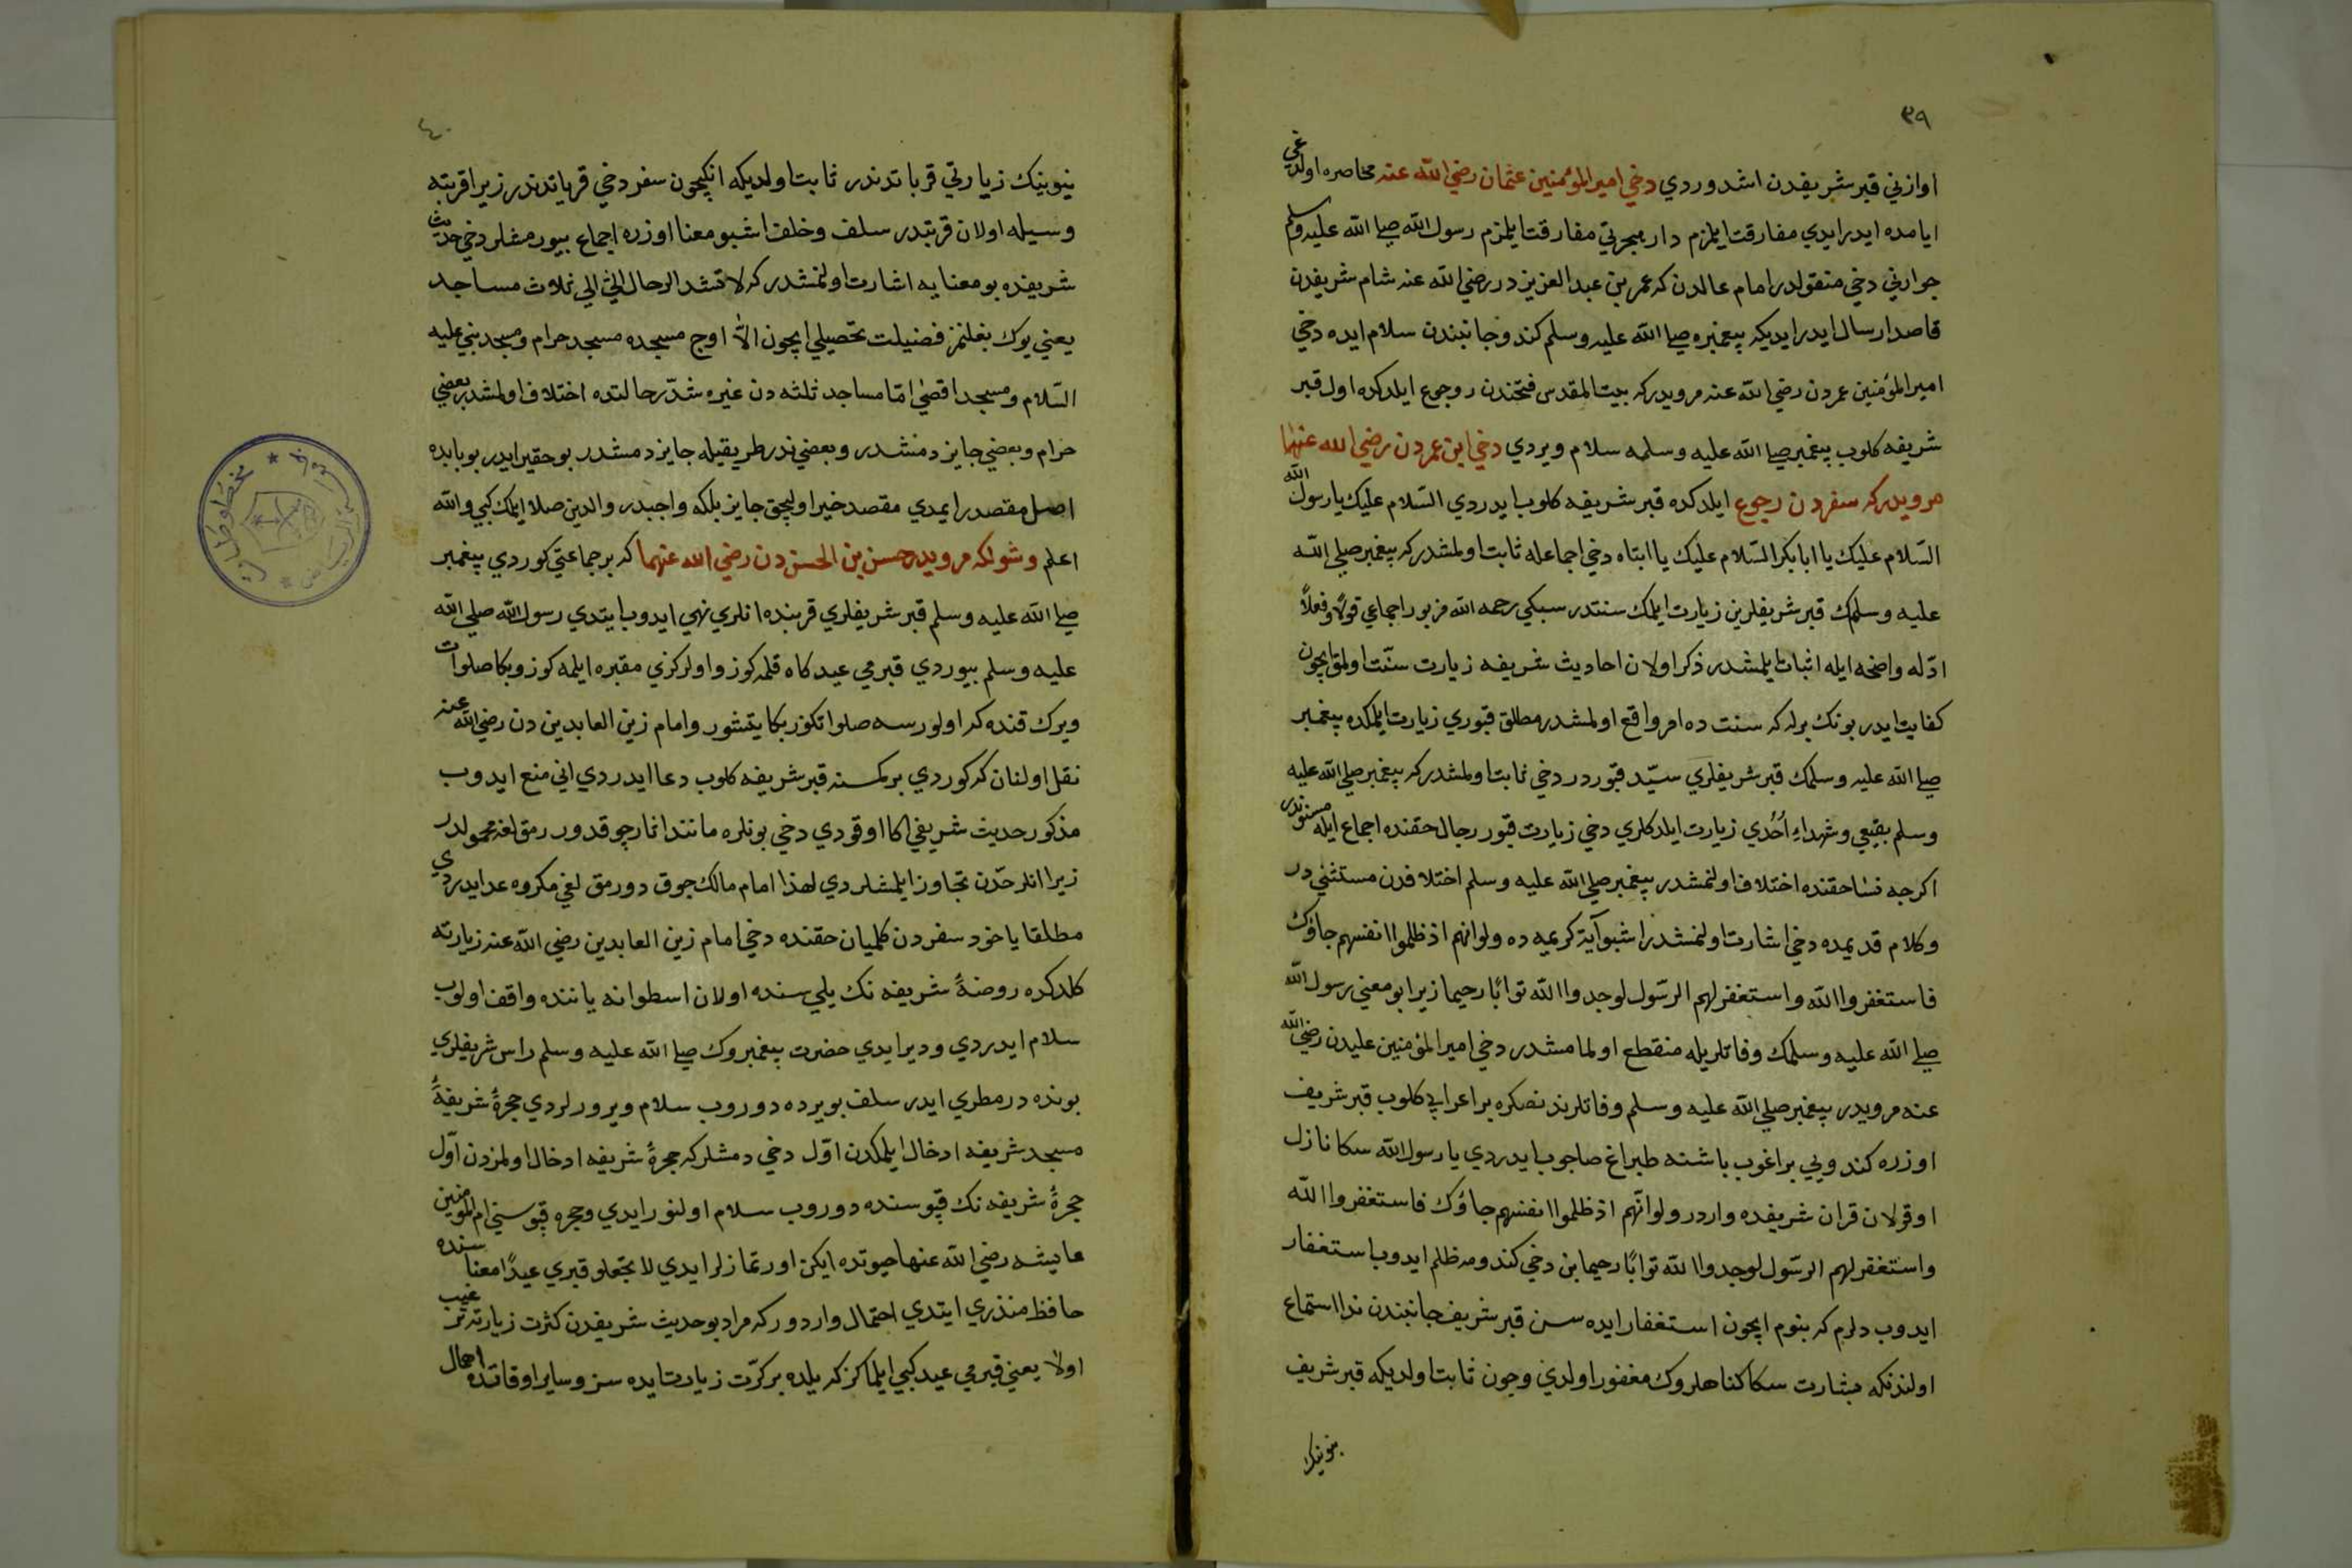 ٣٩
اوازنی قبر شریفدن اشدوردی دخی امیر المؤمنین عثمان رضی الله عنه محاصره اولدیغی
ایامده ایدر ایدی مفارقت ایلمزم دار هجرتی مفارقت ایلمزم رسول الله صلی الله علیه وسلم
جوارنی دخی منقولدر امام عالدن که عمر بن عبد العزیزدر رضی الله عنه شام شریفدن
قاصد ارسال ایدر ایدیکه پیغمبره صلی الله علیه وسلم کندو جانبندن سلام ایده دخی
امیر المؤمنین عمردن رضی الله عنه مرویدرکه بیت المقدس فتحندن رجوع ایلدکده اول قبر
شریفه کلوب پیغمبر صلی الله علیه وسلمه سلام ویردی دخی ابن عمردن رضی الله عنهما
مرویدرکه سفردن رجوع ایلدکده قبر شریفه کلوب ایدردی السّلام علیك یا رسول الله
السّلام علیك یا ابا بکر السّلام علیك یا ابتاه دخی اجماعله ثابت اولمشدرکه پیغمبر صلی الله
علیه وسلمك قبر شریفلرین زیارت ایلمك سنتدر سبکی رحمه الله مزبور اجماعی قولاً وفعلاً
ادّله واضحه ایله اثبات ایلمشدر ذکر اولان احادیث شریفه زیارت سنّت اولمق ایچون
کفایت ایدر بونك برله که سنت ده امر واقع اولمشدر مطلق قبوری زیارت ایلمکده پیغمبر
صلی الله علیه وسلمك قبر شریفلری سیّد قبوردر دخی ثابت اولمشدرکه پیغمبر صلی الله علیه
وسلم بقیعی وشهداء اُحُدی زیارت ایلدکلری دخی زیارت قبور رجال حقنده اجماع ایله مسنوندر
اکرچه نسا حقنده اختلاف اولنمشدر پیغمبر صلی الله علیه وسلم اختلافدن مستثنی در
وکلام قدیمده دخی اشارت اولنمشدر اشبو آیة کریمه ده ولو انهم اذ ظلموا انفسهم جاؤك
فاستغفروا الله واستغفر لهم الرّسول لوجدوا الله توابًا رحیما زیرا بو معنی رسول الله
صلی الله علیه وسلمك وفاتلریله منقطع اولمامشدر دخی امیر المؤمنین علیدن رضی الله
عنه مرویدر پیغمبر صلی الله علیه وسلم وفاتلرندنصکره بر اعرابی کلوب قبر شریف
اوزره کندویی براغوب باشنه طپراغ صاچوب ایدردی یا رسول الله سکا نازل
اوقولان قران شریفده واردر ولو انّهم اذ ظلموا انفسهم جاؤك فاستغفروا الله
واستغفر لهم الرّسول لوجدوا الله توّابًا رحیما بن دخی کندومه ظلم ایدوب استغفار
ایدوب دلرم که بنوم ایچون استغفار ایده سن قبر شریف جانبندن ندا استماع
اولندنکه بشارت سکا کناهلروك مغفور اولدی وچون ثابت اولدیکه قبر شریف
بنوینك
٤٠
ینوینك زیارتی قرباتدندر ثابت اولدیکه انکیچون سفر دخی قرباتدندر زیرا قربته
وسیله اولان قربتدر سلف وخلف اشبو معنا اوزره اجماع بیورمشلر دخی حدیث
شریفده بو معنایه اشارت اولنمشدرکه لا تشد الرحال الّا الی ثلاث مساجد
یعنی یوك بغلنمز فضیلت تحصیلی ایچون الاّ اوچ مسجده مسجد حرام ومسجد نبی علیه
السّلام ومسجد اقصی امّا مساجد ثلثه دن غیره شدّ رحالتده اختلاف اولمشدر بعضی
حرام وبعضی جایز دمشدر وبعضی نذر طریقیله جایز دمشدر بو حقیر ایدر بو بابده
اصل مقصدر ایمدی مقصد خیر اولیجق جایز بلکه واجبدر والدین صلا ایلمك کبی والله
اعلم وشولکه مرویدر حسن بن الحسن دن رضی الله عنهما که بر جماعتی کوردی پیغمبر
صلی الله علیه وسلم قبر شریفلری قربنده انلری نهی ایدوب ایتدی رسول الله صلی الله
علیه وسلم بیوردی قبرمی عیدکاه قلمه کوز واولرکزی مقبره ایلمه کوز وبکا صلوات
ویرك قنده که اولورسه صلواتکوز بکا یتشور وامام زین العابدین دن رضی الله عنه
نقل اولنان که کوردی بر کسنه قبر شریفه کلوب دعا ایدردی انی منع ایدوب
مذکور حدیث شریفی اکا اوقودی دخی بونلره مانند انار چوقدور رمق لغه محمولدر
زیرا انلر حدّن تجاوز ایلمشلردی لهذا امام مالك چوق دورمق لغی مکروه عد ایدردی
مطلقا یاخود سفردن کلمیان حقنده دخی امام زین العابدین رضی الله عنه زیارته
کلدکده روضهٔ شریفه نك یلی سنده اولان اسطوانه یاننده واقف اولوب
سلام ایدردی ودیر ایدی حضرت پیغمبروك صلی الله علیه وسلم راس شریفلری
بونده در مطری ایدر سلف بویرده دوروب سلام ویرورلردی حجرهٔ شریفهٔ
مسجد شریفه ادخال ایلمکدن اوّل دخی دمشلرکه حجرهٔ شریفه ادخال اولمزدن اوّل
حجرهٔ شریفه نك قپوسنده دوروب سلام اولنور ایدی وحجره قپوسنی ام المؤمنین
عایشه رضی الله عنها حیوتده ایکن اورتمازلر ایدی لا تجعلو قبری عیدًا معناسنده
حافظ منذری ایتدی احتمال واردورکه مراد بو حدیث شریفدن کثرت زیارته ترغیب
اولا یعنی قبرمی عید کبی ایلماکز که یلده بر کرّت زیارت ایده سز وسایر اوقاتده اهمال